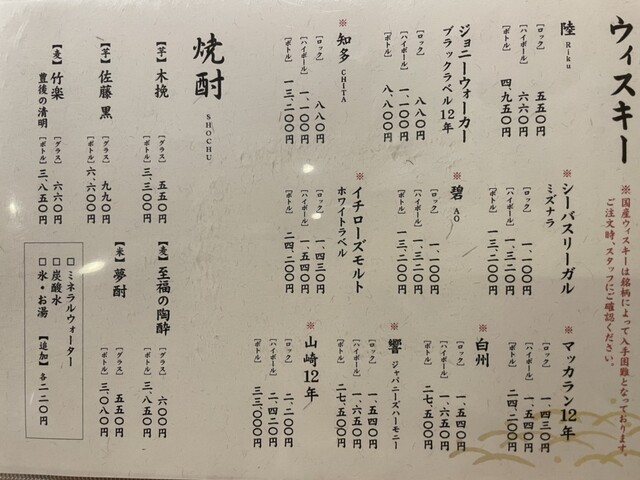 ウィスキー
※国産ウィスキーは銘柄によって入手困難となっております。
ご注文時、スタッフにご確認ください。
陸 Riku
［ロック］ 五五〇円
［ハイボール］ 六六〇円
［ボトル］ 四、九五〇円
ジョニーウォーカー
ブラックラベル12年
［ロック］ 八八〇円
［ハイボール］ 一、一〇〇円
［ボトル］ 八、八〇〇円
※知多 CHITA
［ロック］ 八八〇円
［ハイボール］ 一、一〇〇円
［ボトル］ 一三、二〇〇円
※シーバスリーガル
ミズナラ
［ロック］ 一、一〇〇円
［ハイボール］ 一、三二〇円
［ボトル］ 一三、二〇〇円
※碧 AO
［ロック］ 一、一〇〇円
［ハイボール］ 一、三二〇円
［ボトル］ 一三、二〇〇円
※イチローズモルト
ホワイトラベル
［ロック］ 一、四三〇円
［ハイボール］ 一、五四〇円
［ボトル］ 二四、二〇〇円
※マッカラン12年
［ロック］ 一、四三〇円
［ハイボール］ 一、五四〇円
［ボトル］ 二四、二〇〇円
※白州
［ロック］ 一、五四〇円
［ハイボール］ 一、六五〇円
［ボトル］ 二七、五〇〇円
※響 ジャパニーズハーモニー
［ロック］ 一、五四〇円
［ハイボール］ 一、六五〇円
［ボトル］ 二七、五〇〇円
※山崎12年
［ロック］ 二、二〇〇円
［ハイボール］ 二、四二〇円
［ボトル］ 三三、〇〇〇円
焼酎 SHOCHU
【芋】木挽
［グラス］ 五五〇円
［ボトル］ 三、三〇〇円
【芋】佐藤 黒
［グラス］ 九九〇円
［ボトル］ 六、六〇〇円
【麦】竹楽
豊後の清明
［グラス］ 六六〇円
［ボトル］ 三、八五〇円
【麦】至福の陶酔
［グラス］ 六〇〇円
［ボトル］ 三、八五〇円
【米】夢酎
［グラス］ 五五〇円
［ボトル］ 三、〇八〇円
□ ミネラルウォーター
□ 炭酸水
□ 氷・お湯 【追加】各二二〇円